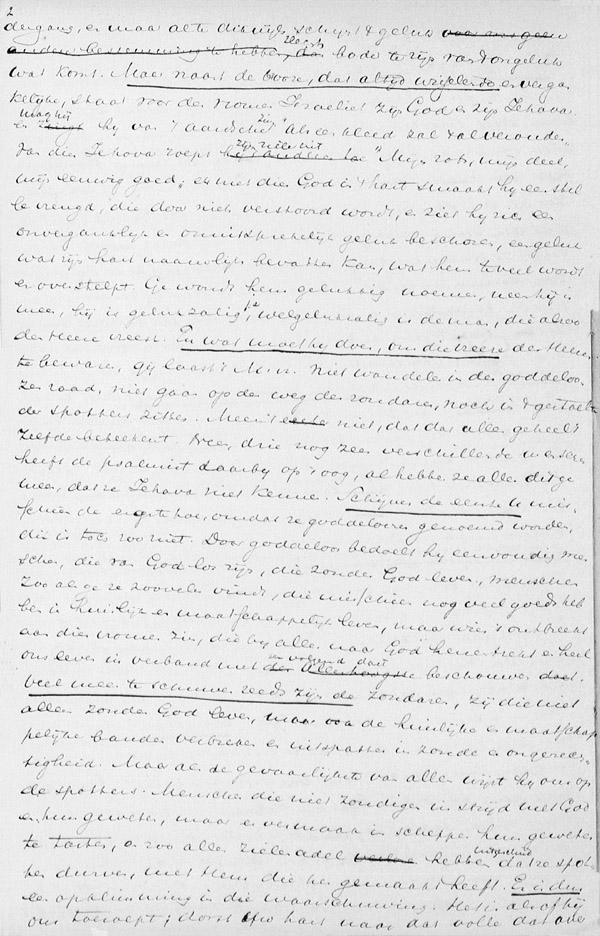 2
dergang, en maar al te dikwijls schijnt 't geluk voor ons geen
andere bestemming te hebben, dan slechts bode te zijn van 't ongeluk
wat komt. Maar naast de boom, dat altijd wisselende en vergan
kelijke, staat voor den vromen Israeliet zijn God en zijn Jehova.
En mag hij van 't aardsche zien "Als een kleed zal 't al verouden",
dan die Jehova roept zijn ziel uit "Mijn rots, mijn deel,
mijn eeuwig goed; en met dien God in 't hart smaakt hij een stil
le vreugd, die door niets verstoord wordt, en ziet hij zich een
onvergankelijk en onuitsprekelijk geluk beschoren, een geluk
wat zijn hart nauwelijks bevatten kan, wat hem te veel wordt
en overstelpt. Ge wordt hem gelukkig noemen, neen hij is
meer, hij is gelukzalig, welgelukzalig is de man, die alzoo
den Heere vreest. En wat moet hij doen, om die vreeze des Heeren
te bewaren, gij laast 't M.. Niet wandelen in den goddeloo
zen raad, niet gaan op den weg der zondaren, noch in 't gestoelte
der spotters zitten. Meen niet, dat dat alles geheel 't
zelfde beteekent. Neen, drie nog zeer verschillende menschen
heeft de psalmist daarbij op 't oog, al hebben ze alle dit ge
meen, dat ze Jehova niet kennen. Schijnen de eerste U mis-
schien de ergste toe, omdat ze goddeloozen genoemd worden,
dit is toch zoo niet. Door goddeloos bedoelt hij eenvoudig men
schen, die van God los zijn, die zonder God leven, menschen
zooals ge ze zoovelen vindt, die misschien nog veel goeds heb
ben in huiselijk en maatschappelijk leven, maar wien 't ontbreekt
aan die vrome zin, die bij alles naar God henen trekt en heel
ons leven in verband met den Allerhoogste beschouwen doet.
Veel meer te schuwen reeds zijn de zondaren, zij die niet
alleen zonder God leven, maar ook de huiselijke en maatschap
pelijke banden verbreken en uitspatten in zonde en ongerech-
tigheid. Maar als de gevaarlijkste van allen wijst hij ons op
de spotters. Menschen die niet zondigen in strijd met God
en hun geweten, maar er vermaak in scheppen hun geweten
te tarten, en zoo alle zieleadel hebben uitgeschud dat ze spot
ten durven, met Hem die hen gemaakt heeft. Er is dus
een opklimming in die waarschuwing. Het is alsof hij
ons toeroept; dorst uw hart naar dat volle dat